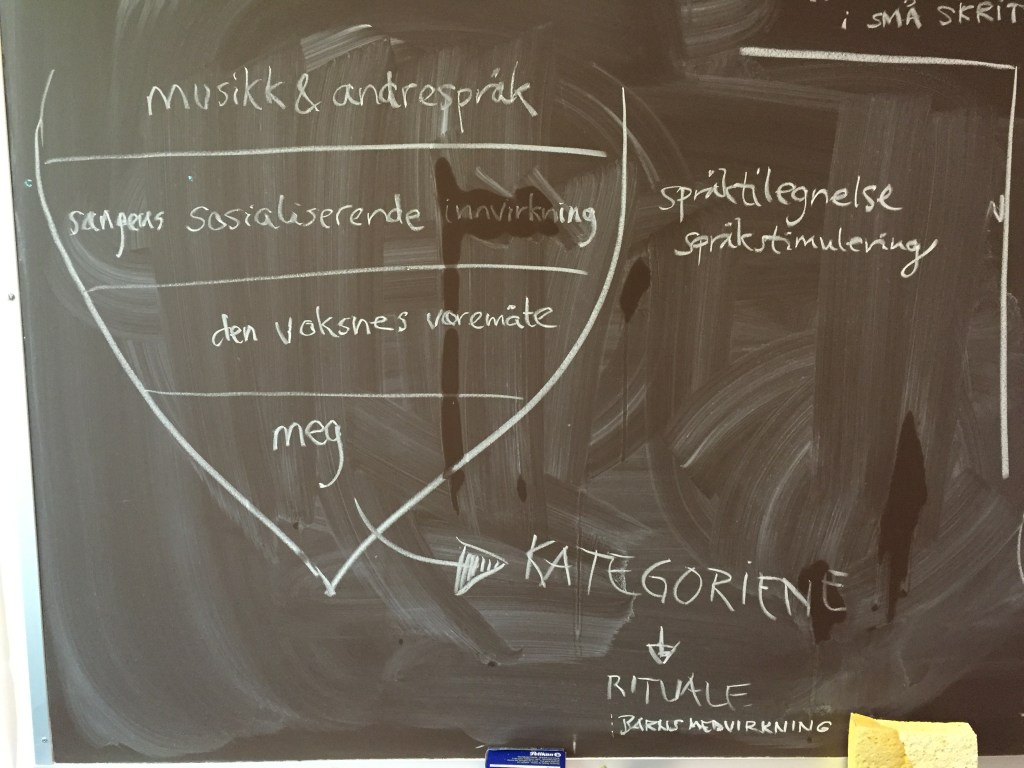 i SMÅ SKRIT
musikk & andrespråk
sangens sosialiserende innvirkning
språktilegnelse
språkstimulering
den voksnes væremåte
meg
KATEGORIENE
RITUALE
BARNS MEDVIRKNING
Pelikan